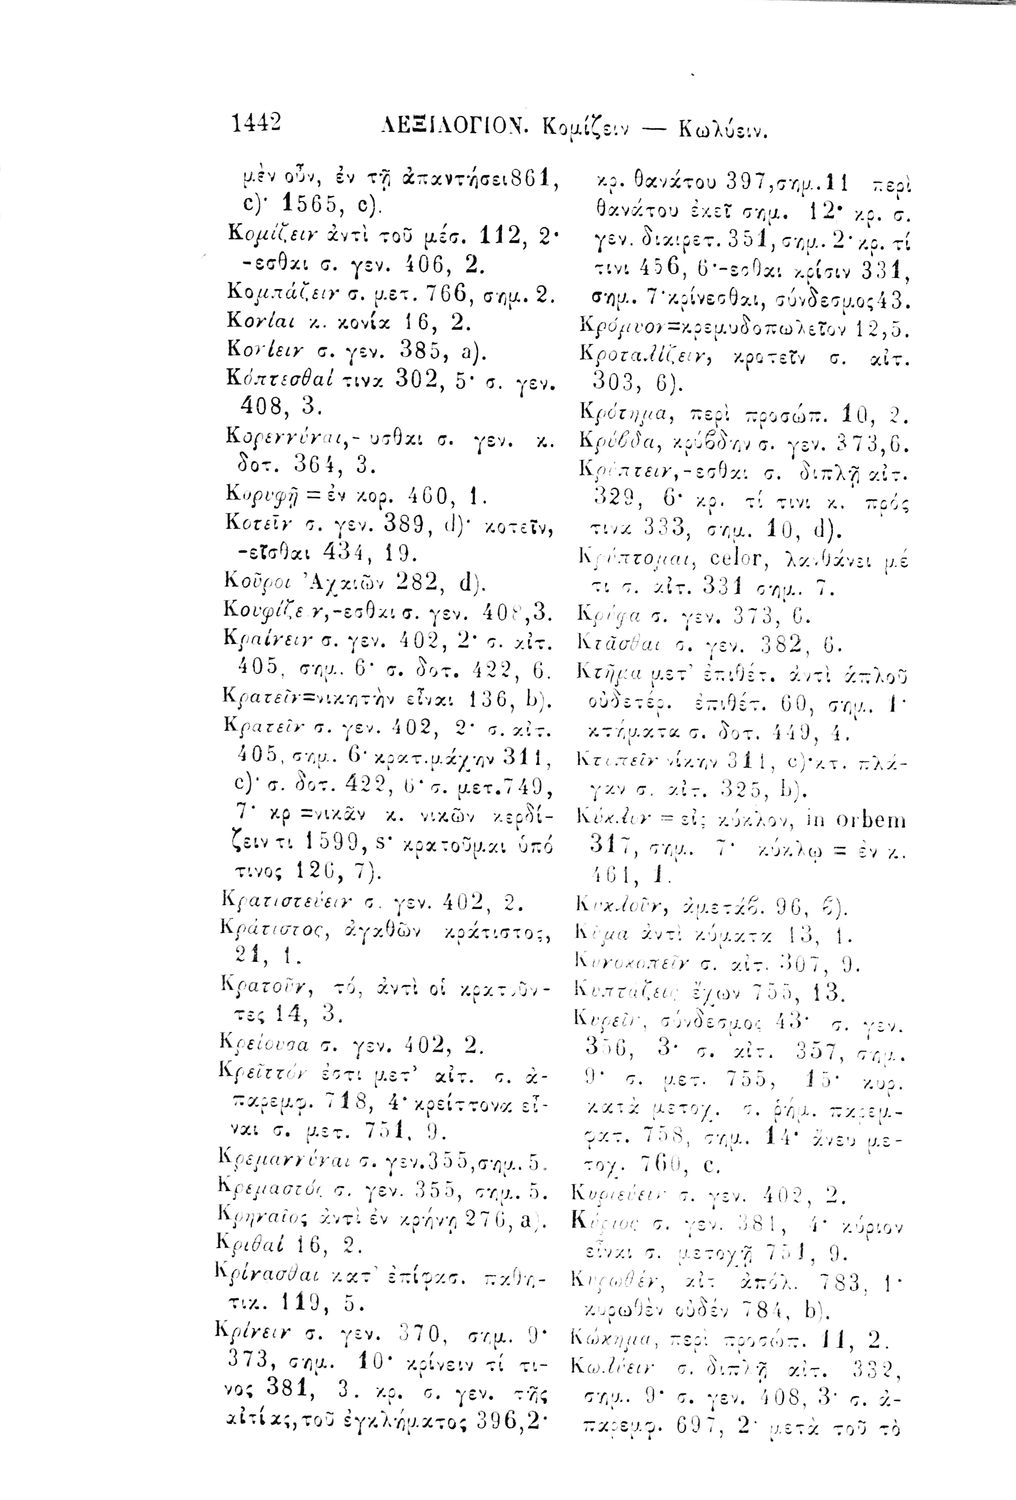 1442 ΛΕΞΙΛΟΓΙΟΝ. Κομίζειν — Κωλύειν.
μὲν οὖν, ἐν τῇ ἀπαντήσει 861,
c)· 1565, c).
Κομίζειν ἀντὶ τοῦ μέσ. 112, 2·
-εσθαι σ. γεν. 406, 2.
Κομπάζειν σ. μετ. 766, σημ. 2.
Κονίαι κ. κονία 16, 2.
Κονίειν σ. γεν. 385, a).
Κόπτεσθαί τινα 302, 5· σ. γεν.
408, 3.
Κορεννύναι,- υσθαι σ. γεν. κ.
δοτ. 364, 3.
Κορυφῇ = ἐν κορ. 460, 1.
Κοτεῖν σ. γεν. 389, d)· κοτεῖν,
-εῖσθαι 434, 19.
Κοῦροι Ἀχαιῶν 282, d).
Κουφίζειν,-εσθαι σ. γεν. 408,3.
Κραίνειν σ. γεν. 402, 2· σ. αἰτ.
405, σημ. 6· σ. δοτ. 422, 6.
Κρατεῖν=νικητὴν εἶναι 136, b).
Κρατεῖν σ. γεν. 402, 2· σ. αἰτ.
405, σημ. 6· κρατ. μάχην 311,
c)· σ. δοτ. 422, 6· σ. μετ. 749,
7· κρ =νικᾶν κ. νικῶν κερδί-
ζειν τι 1599, s· κρατοῦμαι ὑπό
τινος 126, 7).
Κρατιστεύειν σ. γεν. 402, 2.
Κράτιστος, ἀγαθῶν κράτιστος,
21, 1.
Κρατοῦν, τό, ἀντὶ οἱ κρατοῦν-
τες 14, 3.
Κρείουσα σ. γεν. 402, 2.
Κρεῖττόν ἐστι μετ' αἰτ. σ. ἀ-
παρεμφ. 718, 4· κρείττονα εἶ-
ναι σ. μετ. 751, 9.
Κρεμαννύναι σ. γεν. 355,σημ. 5.
Κρεμαστός σ. γεν. 355, σημ. 5.
Κρηναῖος ἀντὶ ἐν κρήνῃ 276, a).
Κριθαί 16, 2.
Κρίνασθαι κατ' ἐπίφασ. παθη-
τικ. 119, 5.
Κρίνειν σ. γεν. 370, σημ. 9·
373, σημ. 10· κρίνειν τί τι-
νος 381, 3. κρ. σ. γεν. τῆς
αἰτίας, τοῦ ἐγκλήματος 396,2·
κρ. θανάτου 397,σημ. 11 περὶ
θανάτου ἐκεῖ σημ. 12· κρ. σ.
γεν. διαιρετ. 351, σημ. 2· κρ. τί
τινι 456, 6·-εσθαι κρίσιν 331,
σημ. 7·κρίνεσθαι, σύνδεσμος 43.
Κρόμυον=κρεμυδοπωλεῖον 12,5.
Κροταλίζειν, κροτεῖν σ. αἰτ.
303, 6).
Κρότημα, περὶ προσώπ. 10, 2.
Κρύβδα, κρύβδην σ. γεν. 373,6.
Κρύπτειν,-εσθαι σ. διπλῇ αἰτ.
329, 6· κρ. τί τινι κ. πρός
τινα 333, σημ. 10, d).
Κρύπτομαι, celor, λανθάνει μέ
τι σ. αἰτ. 331 σημ. 7.
Κρύφα σ. γεν. 373, 6.
Κτᾶσθαι σ. γεν. 382, 6.
Κτῆμα μετ' ἐπιθέτ. ἀντὶ ἁπλοῦ
οὐδετέρ. ἐπιθέτ. 60, σημ. 1·
κτήματα σ. δοτ. 449, 4.
Κτυπεῖν νίκην 311, c)·κτ. πλά-
γαν σ. αἰτ. 325, b).
Κύκλον = εἰς κύκλον, in orbem
317, σημ. 7· κύκλῳ = ἐν κ.
461, 1.
Κυκλοῦν, ἀμετάβ. 96, 6).
Κῦμα ἀντὶ κύματα 13, 1.
Κυνοκοπεῖν σ. αἰτ. 307, 9.
Κυπτάζεις ἔχων 755, 13.
Κυρεῖν, σύνδεσμος 43· σ. γεν.
356, 3· σ. αἰτ. 357, σημ.
9· σ. μετ. 755, 15· κυρ.
κατὰ μετοχ. σ. ῥήμ. παρεμ-
φατ. 758, σημ. 14· ἄνευ με-
τοχ. 760, c.
Κυριεύειν σ. γεν. 402, 2.
Κύριος σ. γεν. 381, 4· κύριον
εἶναι σ. μετοχῇ 751, 9.
Κυρωθέν, αἰτ ἀπόλ. 783, 1·
κυρωθὲν οὐδέν 784, b).
Κώκημα, περὶ προσώπ. 11, 2.
Κωλύειν σ. διπλῇ αἰτ. 332,
σημ. 9· σ. γεν. 408, 3· σ. ἀ-
παρεμφ. 697, 2· μετὰ τοῦ τὸ